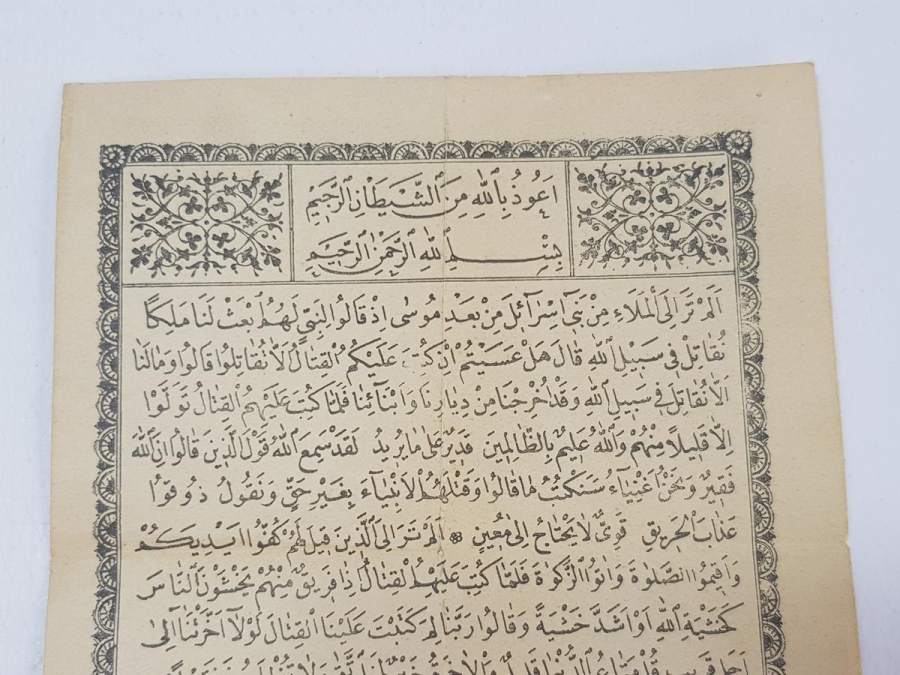 اَعُوذُ بِاللّٰهِ مِنَ الشَّيْطَانِ الرَّجِيْمِ
بِسْمِ اللّٰهِ الرَّحْمٰنِ الرَّحِيْمِ
اَلَمْ تَرَ اِلَى الْمَلَاءِ مِنْ بَنِى اِسْرَآئِلَ مِنْ بَعْدِ مُوسٰى اِذْ قَالُوا لِنَبِىٍّ لَهُمُ ابْعَثْ لَنَا مَلِكًا
نُقَاتِلْ فِى سَبِيْلِ اللّٰهِ قَالَ هَلْ عَسَيْتُمْ اِنْ كُتِبَ عَلَيْكُمُ الْقِتَالُ اَلَّا تُقَاتِلُوا قَالُوا وَمَا لَنَا
اَلَّا نُقَاتِلَ فِى سَبِيْلِ اللّٰهِ وَقَدْ اُخْرِجْنَا مِنْ دِيَارِنَا وَاَبْنَآئِنَا فَلَمَّا كُتِبَ عَلَيْهِمُ الْقِتَالُ تَوَلَّوْا
اِلَّا قَلِيلًا مِنْهُمْ وَاللّٰهُ عَلِيمٌ بِالظَّالِمِينَ قَدِيرٌ عَلٰى مَا يُرِيدُ لَقَدْ سَمِعَ اللّٰهُ قَوْلَ الَّذِينَ قَالُوا اِنَّ اللّٰهَ
فَقِيرٌ وَنَحْنُ اَغْنِيَآءُ سَنَكْتُبُ مَا قَالُوا وَقَتْلَهُمُ الْاَنْبِيَآءَ بِغَيْرِ حَقٍّ وَنَقُولُ ذُوقُوا
عَذَابَ الْحَرِيقِ قَوِىٌّ لَا يَحْتَاجُ اِلٰى مُعِينٍ اَلَمْ تَرَ اِلَى الَّذِينَ قِيلَ لَهُمْ كُفُّوا اَيْدِيَكُمْ
وَاَقِيمُوا الصَّلٰوةَ وَاٰتُوا الزَّكٰوةَ فَلَمَّا كُتِبَ عَلَيْهِمُ الْقِتَالُ اِذَا فَرِيقٌ مِنْهُمْ يَخْشَوْنَ النَّاسَ
كَخَشْيَةِ اللّٰهِ اَوْ اَشَدَّ خَشْيَةً وَقَالُوا رَبَّنَا لِمَ كَتَبْتَ عَلَيْنَا الْقِتَالَ لَوْلَآ اَخَّرْتَنَآ اِلٰى